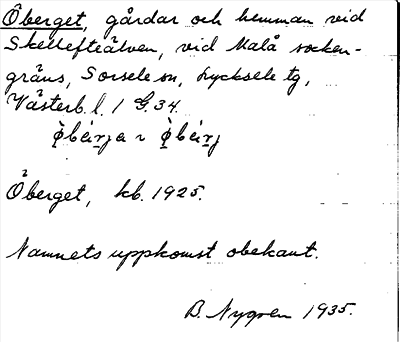 Öberget, gårdar och hemman vid
Skellefteälven, vid Malå socken-
gräns, Sorsele sn, Lycksele tg,
Västerb. l. 1 G. 34.
Öberget, kb. 1925.
Namnets uppkomst obekant.
B. Nygren 1935.